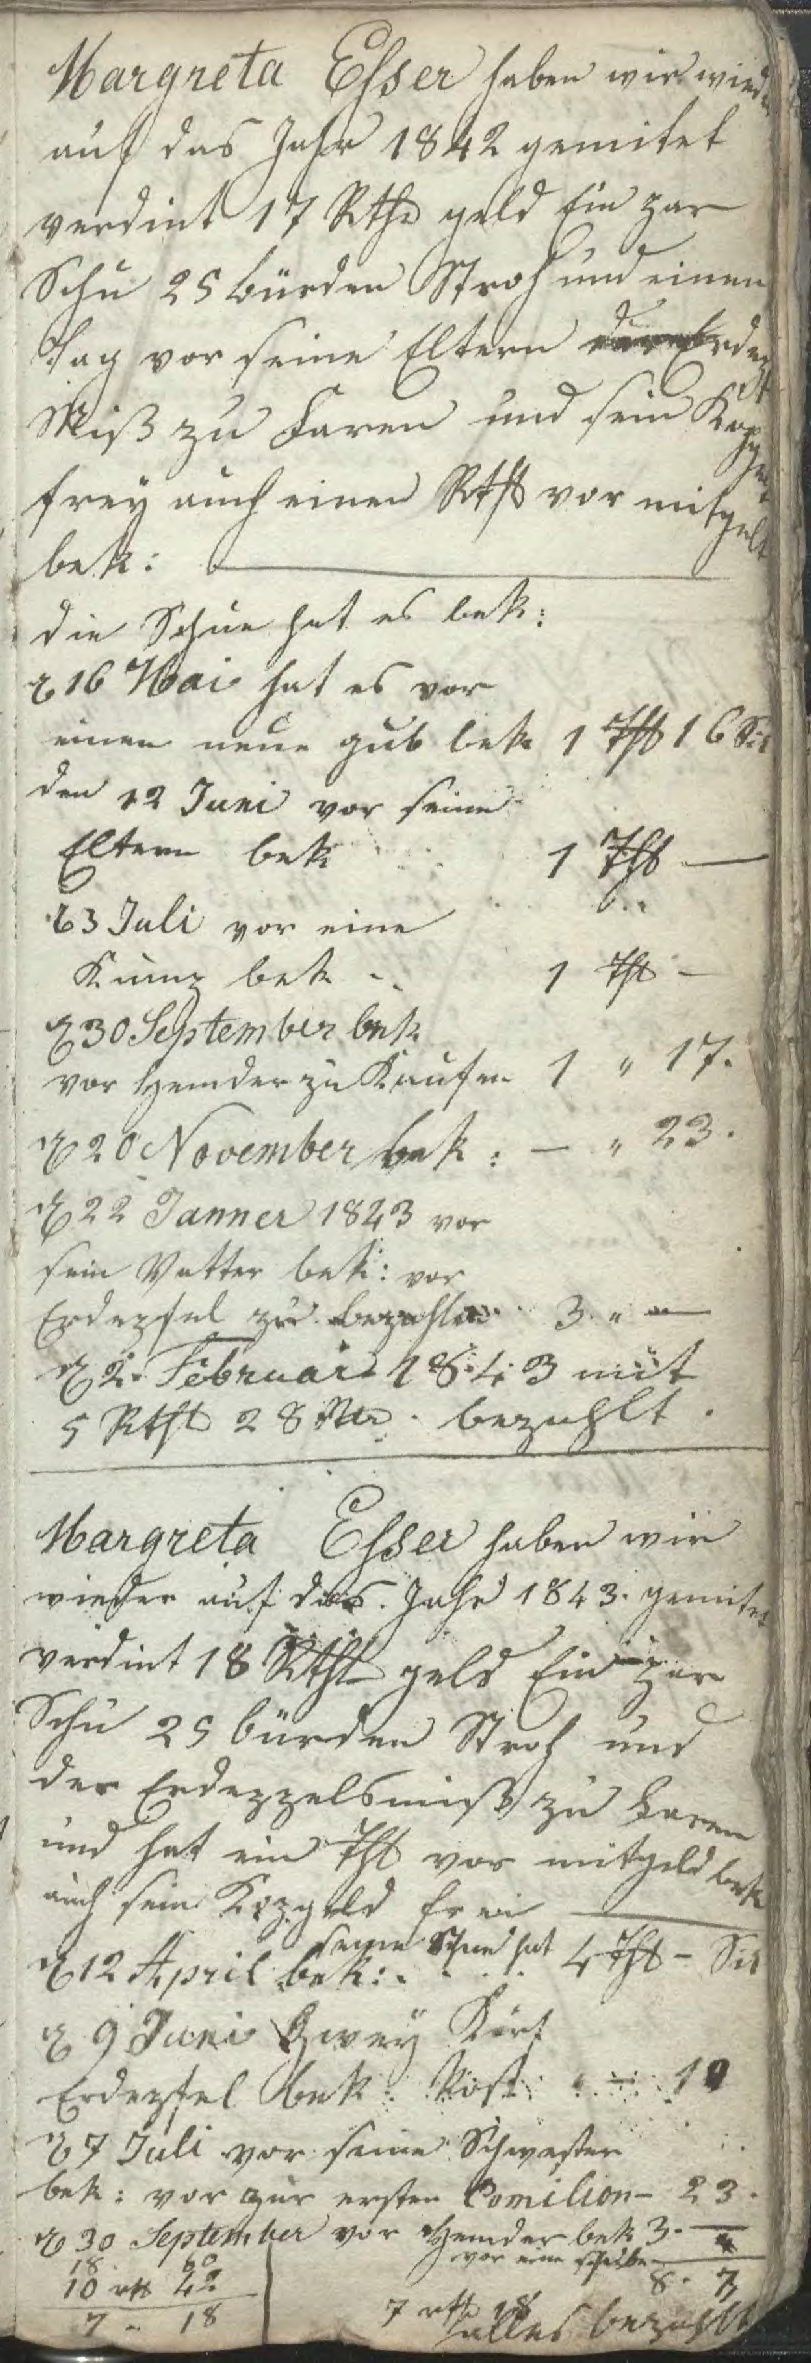 Margreta Esser haben wir wieder
auf das Jahr 1842 gemitet
verdint 17 Rthr geld Ein par
Schu 25 bürden Stroh und einen
Tag vor seine Eltern
Miß zu Faren und sein Kopgel
frey auch einen Rtht vor mitgelt
bek:
die Schue hat es bek:
d 16 Mai hat es vor
einen neue gub bek 1 Tht 16 Sil
den 12 Juni vor seine
Eltern bek 1 Tht —
d 3 Juli vor eine
bek 1 Tht —
d 30 September bek
vor Hemder zu Kaufen 1 " 17.
d 20 November bek: — " 23.
d 22 Janner 1843 vor
sein Vatter bek: vor
Erdepfel zu bezahlen 3 " —
d 2. Februar 1843 mit
5 Rtht 28 bezahlt.
Margreta Esser haben wir
wieder auf das Jahr 1843. gemitet
verdint 18 Rtht geld Ein par
Schu 25 bürden Stroh und
der Erdezzelsmiß zu Faren
und hat ein Tht vor mitgeld bek
auch sein Kopgeld frei
seine Schue hat
d 12 April bek: 4 Tht — Sil
d 9 Juni Zwey Kört
Erdepfel bek: Kost " — 19
d 7 Juli vor seine Schwester
bek: vor zur ersten Comilion — 23.
d 30 September vor Hemder bek 3. —
vor eine
18 60
10 rtt 42 8. 7
7 " 18 7 rtt 18
alles bezahlt